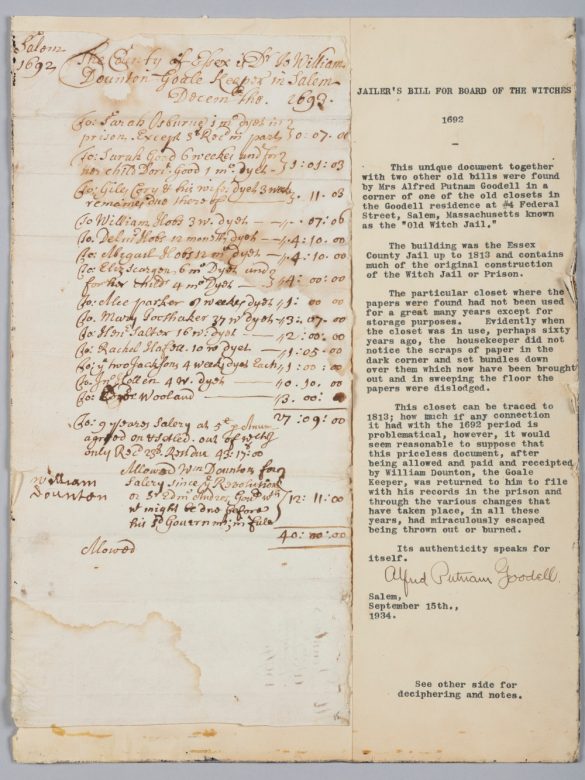 Salem
1692
The County of Essex is Dr to William
Dounton Goale Keeper in Salem
Decem the. 1693
To: Sarah Osburne 1 mo dyet in
prison. Except 3s Rec'd in part 0:07:00
To: Sarah Good 6 weekes and for
her child Dori. Good 1 mo. dyet 1:01:03
To: Giles Cory & his wife dyet 3 week
remaines due there up 11:03
To William Hobs 3 w. dyet 07:06
To: Delive Hobs 12 months dyet 4:10:00
To: Abigail Hobs 12 mo dyet 4:10:00
To: Eliz Scargen 6 mo Dyet and
for her child 4 mo Dyet 4:00:00
To: Alce parker 8 weeke dyet 1:00:00
To: Mary Toothaker 27 w dyet 3:07:00
To: Hen: Salter 16 w dyet 2:00:00
To: Rachel 10 w Dyet 1:05:00
To: two Jacksons 4 week dyet Each 1:00:00
To: 4 w. dyet 0:10:00
To: Wooland 3:00:
27:09:00
To: 9 yeares Salery at 5£ p Anum
agreed on & settled. out of which
only Rec'd
Allowed Wm Dounton for
Salery since ye Revolution
or Sr Edm: Andros
it might be due before
his Governm: in full
12:11:00
William
Dounton
40:00:00
Allowed
JAILER'S BILL FOR BOARD OF THE WITCHES
1692
-
This unique document together
with two other old bills were found
by Mrs Alfred Putnam Goodell in a
corner of one of the old closets in
the Goodell residence at #4 Federal
Street, Salem, Massachusetts known
as the "Old Witch Jail."
The building was the Essex
County Jail up to 1813 and contains
much of the original construction
of the Witch Jail or Prison.
The particular closet where the
papers were found had not been used
for a great many years except for
storage purposes. Evidently when
the closet was in use, perhaps sixty
years ago, the housekeeper did not
notice the scraps of paper in the
dark corner and set bundles down
over them which now have been brought
out and in sweeping the floor the
papers were dislodged.
This closet can be traced to
1813; how much if any connection
it had with the 1692 period is
problematical, however, it would
seem reasonable to suppose that
this priceless document, after
being allowed and paid and receipted
by William Dounton, the Goale
Keeper, was returned to him to file
with his records in the prison and
through the various changes that
have taken place, in all these
years, had miraculously escaped
being thrown out or burned.
Its authenticity speaks for
itself.
Alfred Putnam Goodell.
Salem,
September 15th.,
1934.
See other side for
deciphering and notes.